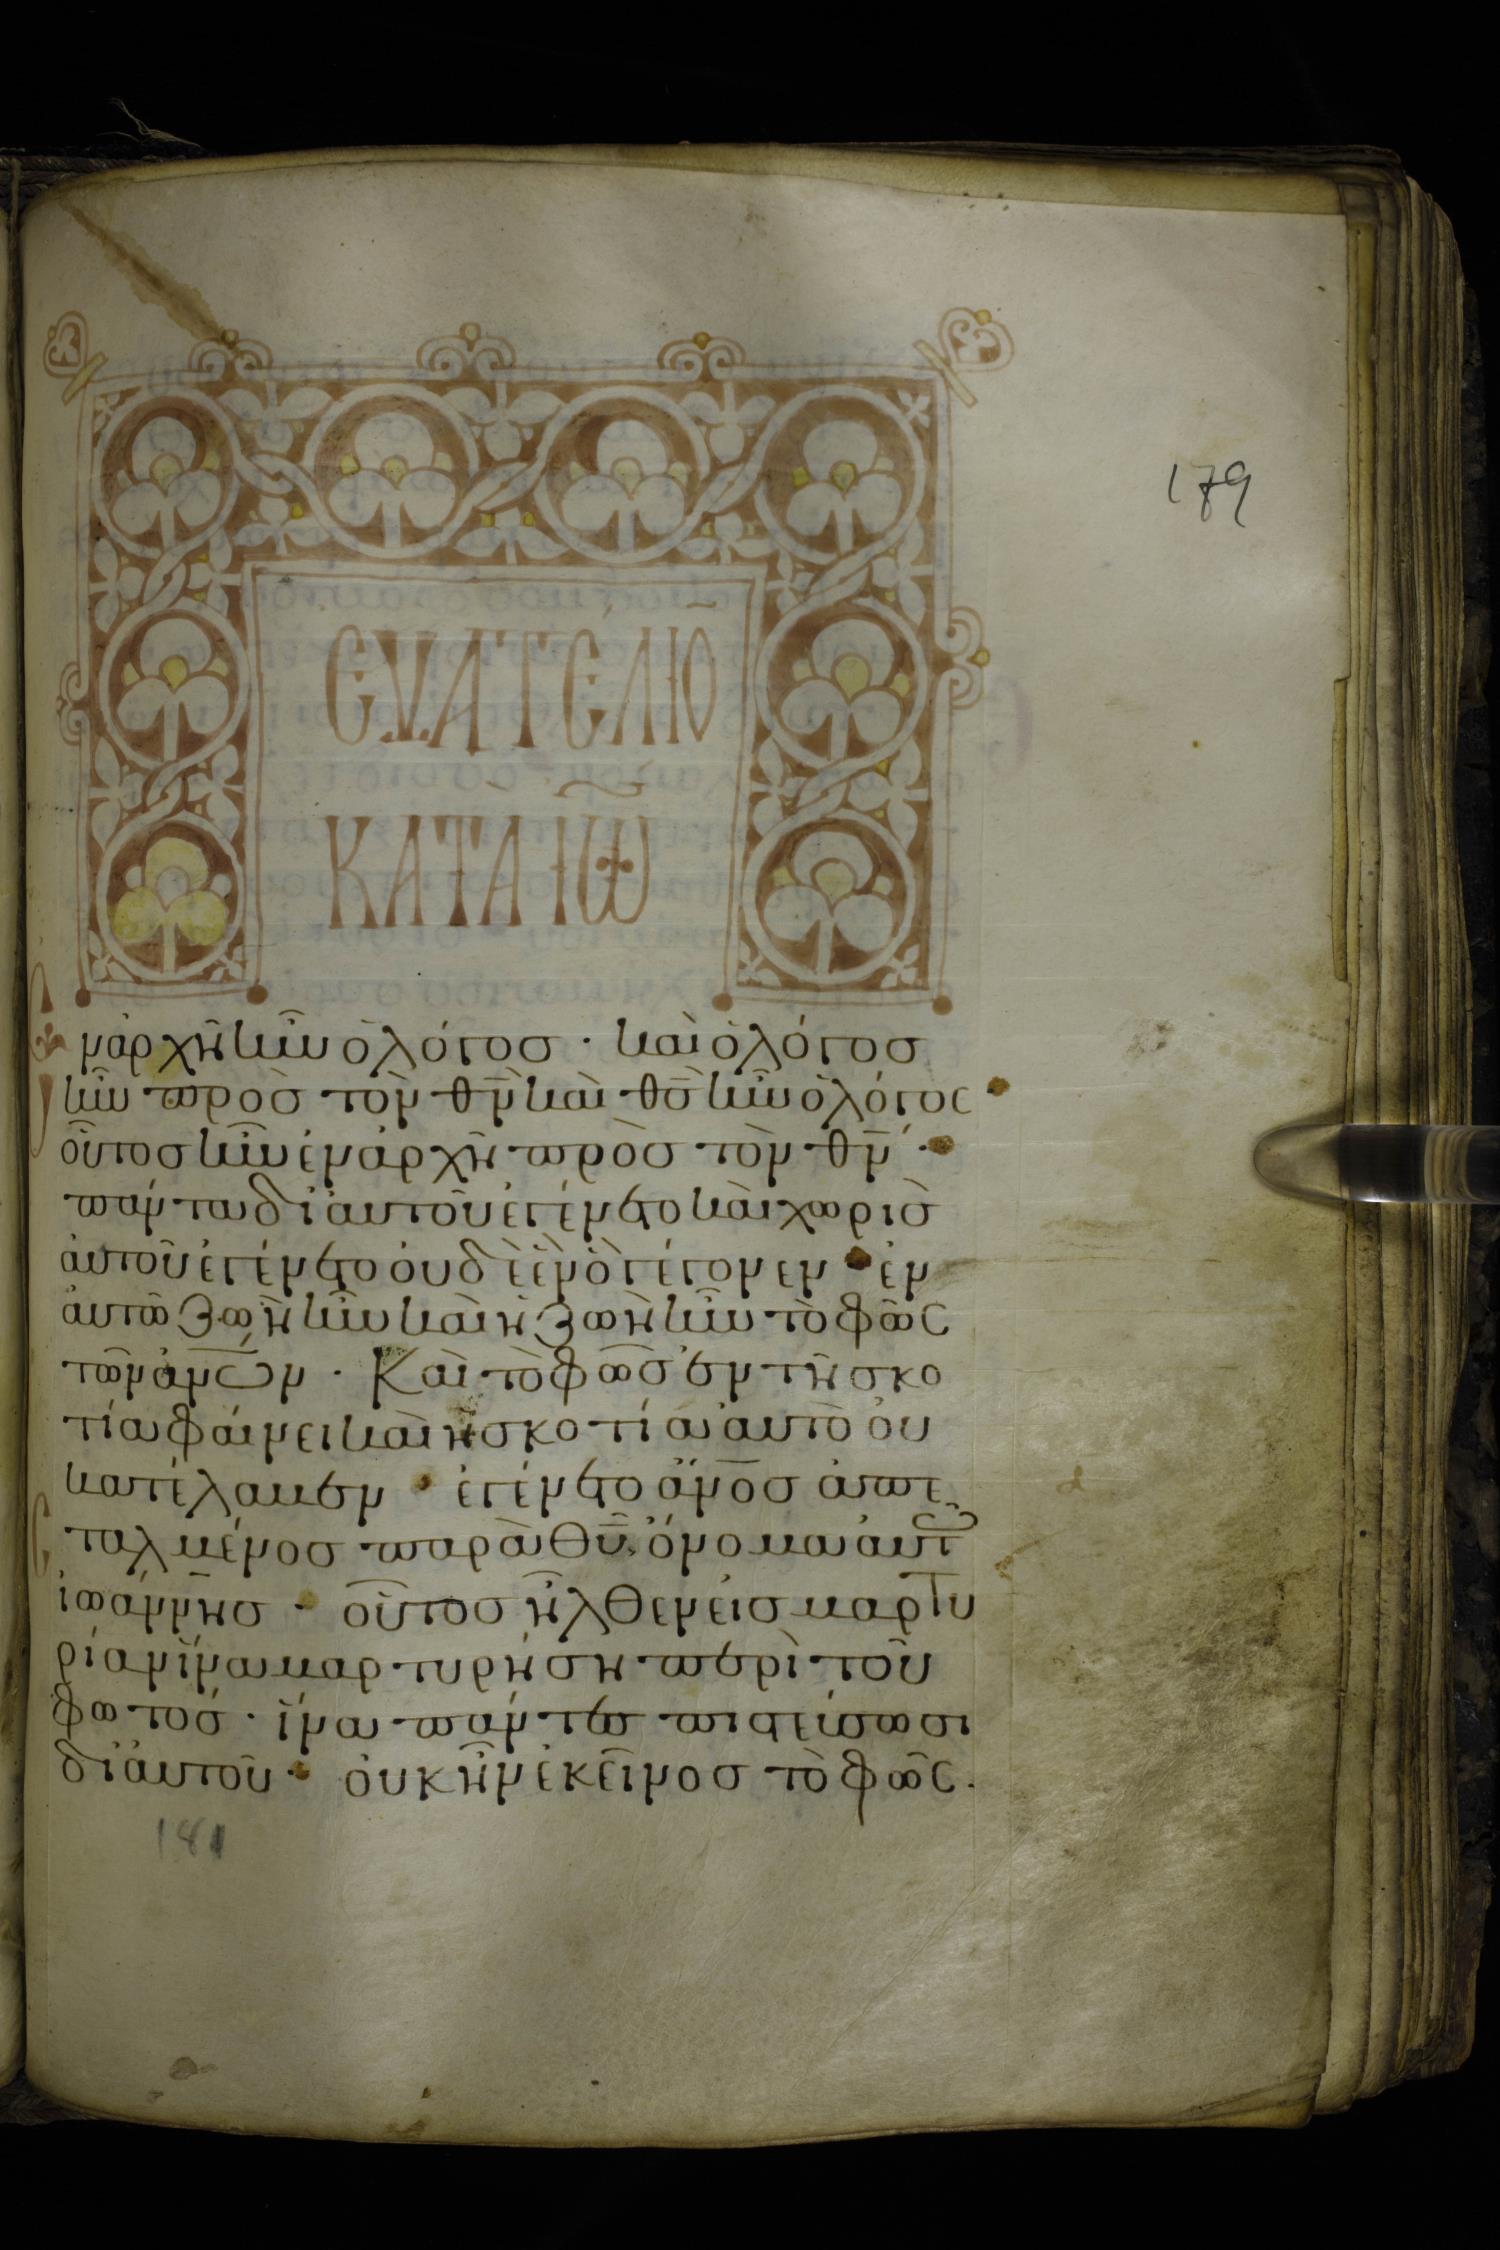 179
ΕΥΑΓΓΕΛΙΟ̅
ΚΑΤᾺ ΙΩ̅
Ἐν ἀρχῆ ἦν ὁ λόγοσ · καὶ ὁ λόγοσ
ἦν πρὸσ τὸν θν̅ καὶ θσ̅ ἦν ὁ λόγος
οὗτοσ ἦν ἐν ἀρχῆ πρὸσ τὸν θν̅ ·
πάντα δι ἀυτοῦ ἐγένετο καὶ χωρὶσ
ἀυτοῦ ἐγένετο ὀυδὲ ἓν ὃ γέγονεν · ἐν
ἀυτῶ ζωὴ ἦν καὶ ἡ ζωὴ ἦν τὸ φῶς
τῶν ἀν̅ω̅ν · Καὶ τὸ φῶσ ἐν τῆ σκο
τία φάινει καὶ ἡ σκοτία ἀυτὸ ὀυ
κατέλαβεν · ἐγένετο ἄν̅ο̅σ ἀπε
ταλμένοσ παρὰ θυ̅, ὄνομα ἀυτῶ
ἰωάννησ · οὗτοσ ἦλθεν εἰσ μαρτυ
ρίαν ἵνα μαρτυρήση περὶ τοῦ
φωτόσ · ἵνα πάντες πιστεύσωσι
δι ἀυτοῦ · ὀυκ ἦν ἐκεῖνοσ τὸ φῶς.
181